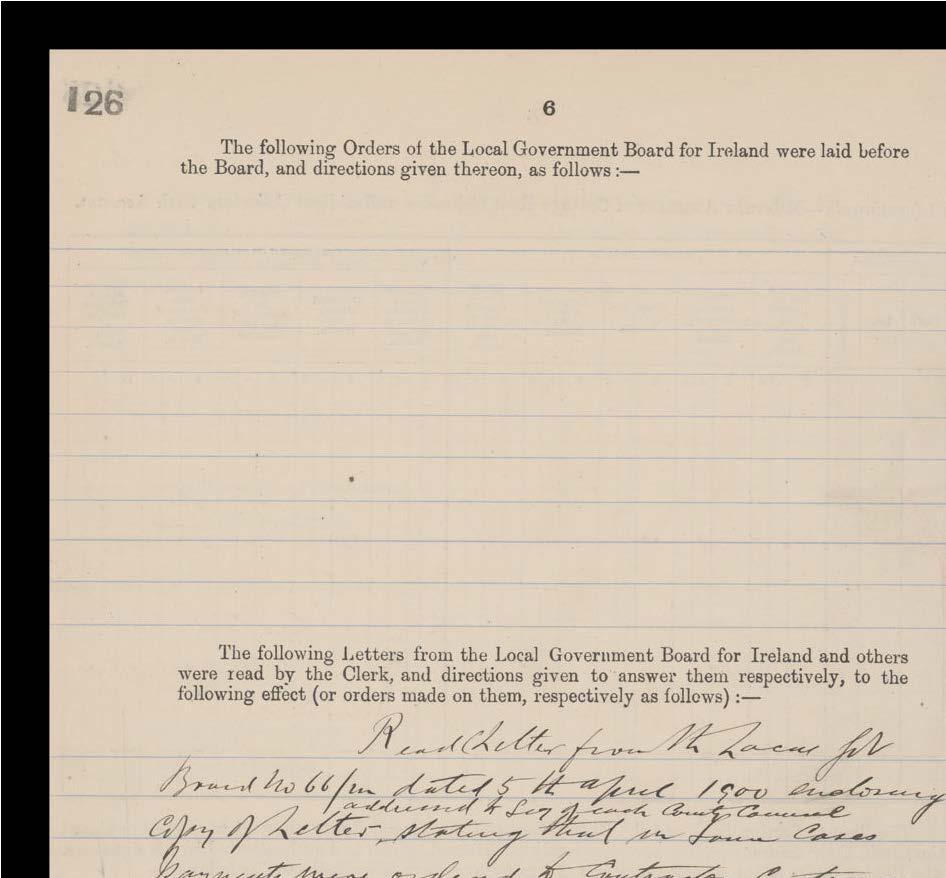 126
6
The following Orders of the Local Government Board for Ireland were laid before
the Board, and directions given thereon, as follows :—
The following Letters from the Local Government Board for Ireland and others
were read by the Clerk, and directions given to answer them respectively, to the
following effect (or orders made on them, respectively as follows) :—
Read Letter from th Local Gov
Board No 66/m dated 5th april 1900 enclosing
addressed to Secy of each County Council
Copy of Letter, stating that in Some Cases
payments were ordered to Contractors